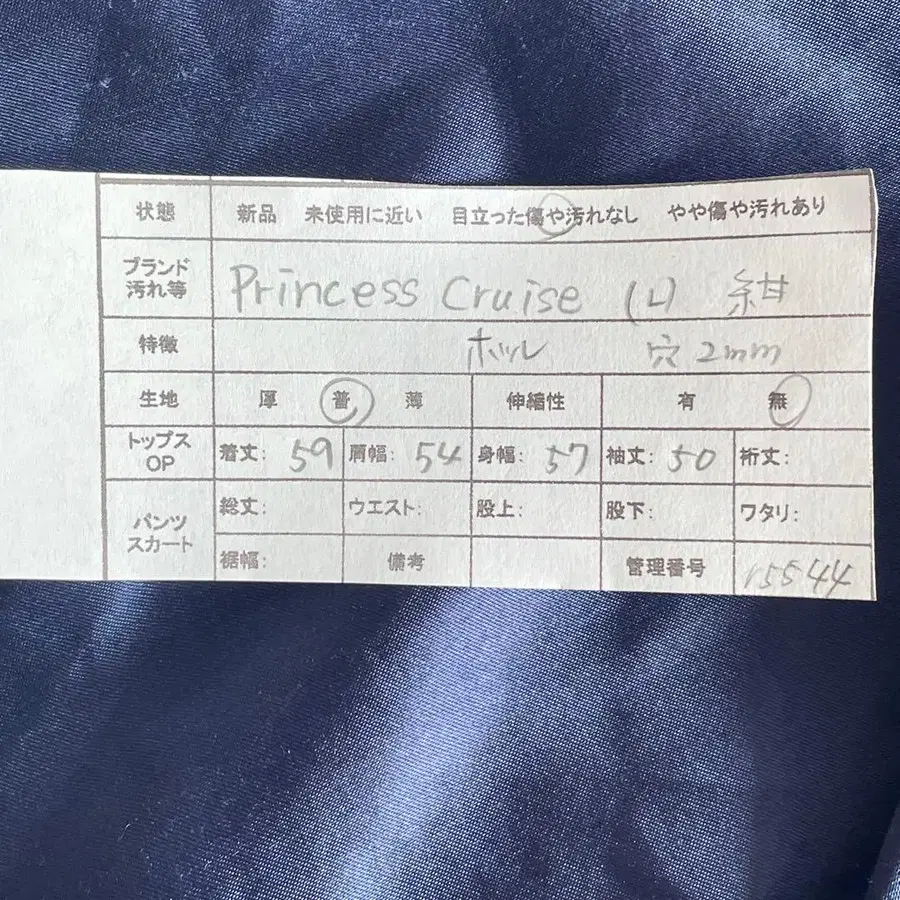 状態 新品 未使用に近い 目立った傷や汚れなし やや傷や汚れあり
ブランド
汚れ等 Princess Cruise (L) 紺
特徴 ホツレ 穴2mm
生地 厚 普 薄 伸縮性 有 無
トップス
OP 着丈: 59 肩幅: 54 身幅: 57 袖丈: 50 裄丈:
パンツ
スカート 総丈: ウエスト: 股上: 股下: ワタリ:
裾幅: 備考 管理番号 15544